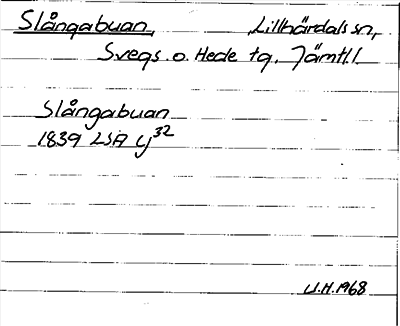 Slångabuan, Lillhärdals sn,
Svegs o. Hede tg. Jämtl.l
Slångabuan
1839 LSA y32
U.H.1968